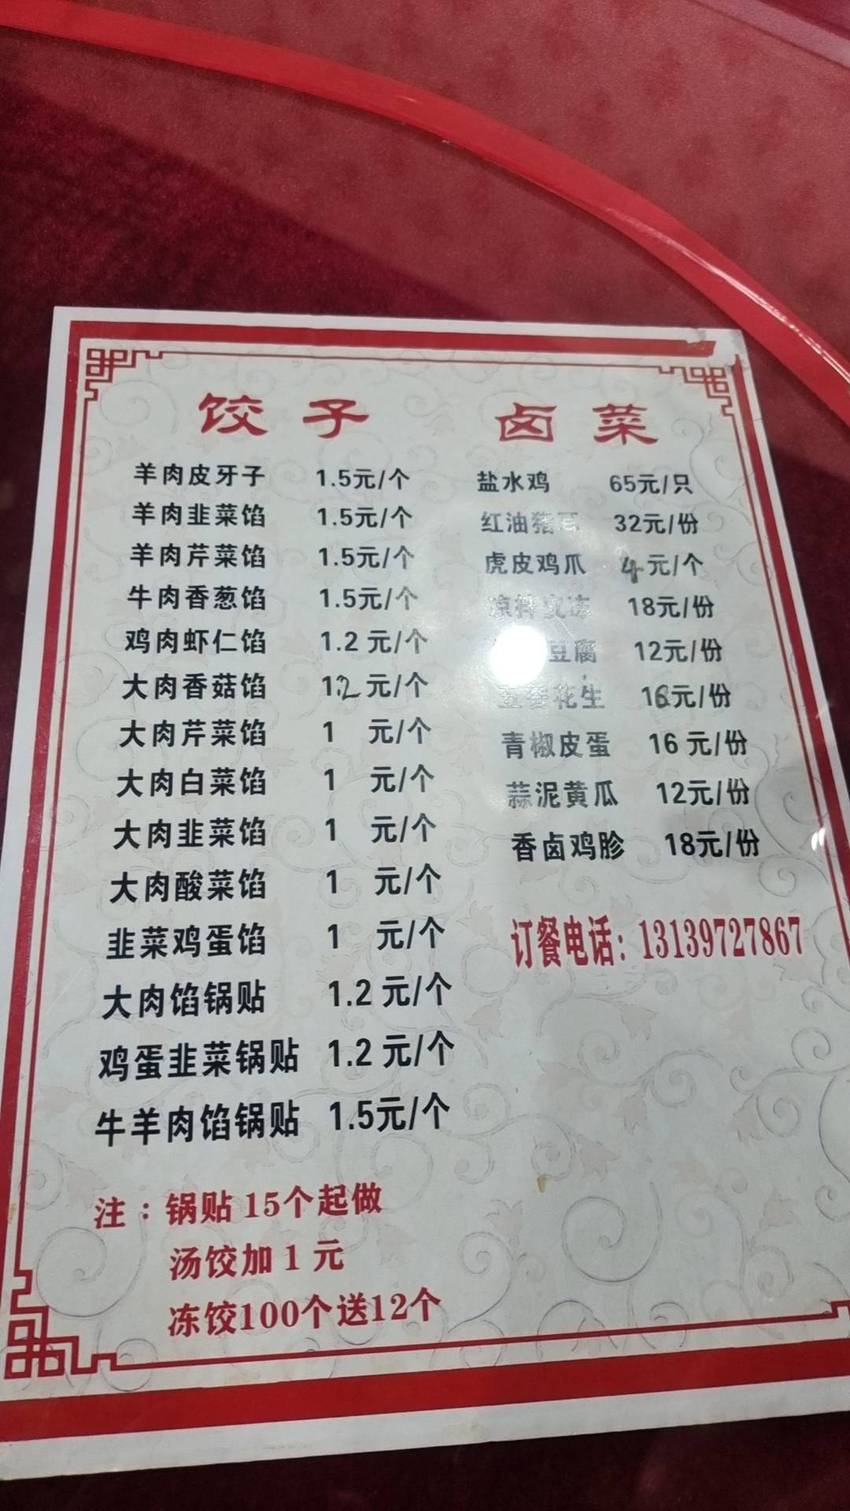 饺子
羊肉皮牙子 1.5元/个
羊肉韭菜馅 1.5元/个
羊肉芹菜馅 1.5元/个
牛肉香葱馅 1.5元/个
鸡肉虾仁馅 1.2 元/个
大肉香菇馅 1.2 元/个
大肉芹菜馅 1 元/个
大肉白菜馅 1 元/个
大肉韭菜馅 1 元/个
大肉酸菜馅 1 元/个
韭菜鸡蛋馅 1 元/个
大肉馅锅贴 1.2 元/个
鸡蛋韭菜锅贴 1.2 元/个
牛羊肉馅锅贴 1.5元/个
注：锅贴 15个起做
汤饺加 1 元
冻饺100个送12个
卤菜
盐水鸡 65元/只
红油猪耳 32元/份
虎皮鸡爪 4元/个
凉拌皮冻 18元/份
豆腐 12元/份
花生 16元/份
青椒皮蛋 16 元/份
蒜泥黄瓜 12元/份
香卤鸡胗 18元/份
订餐电话：13139727867